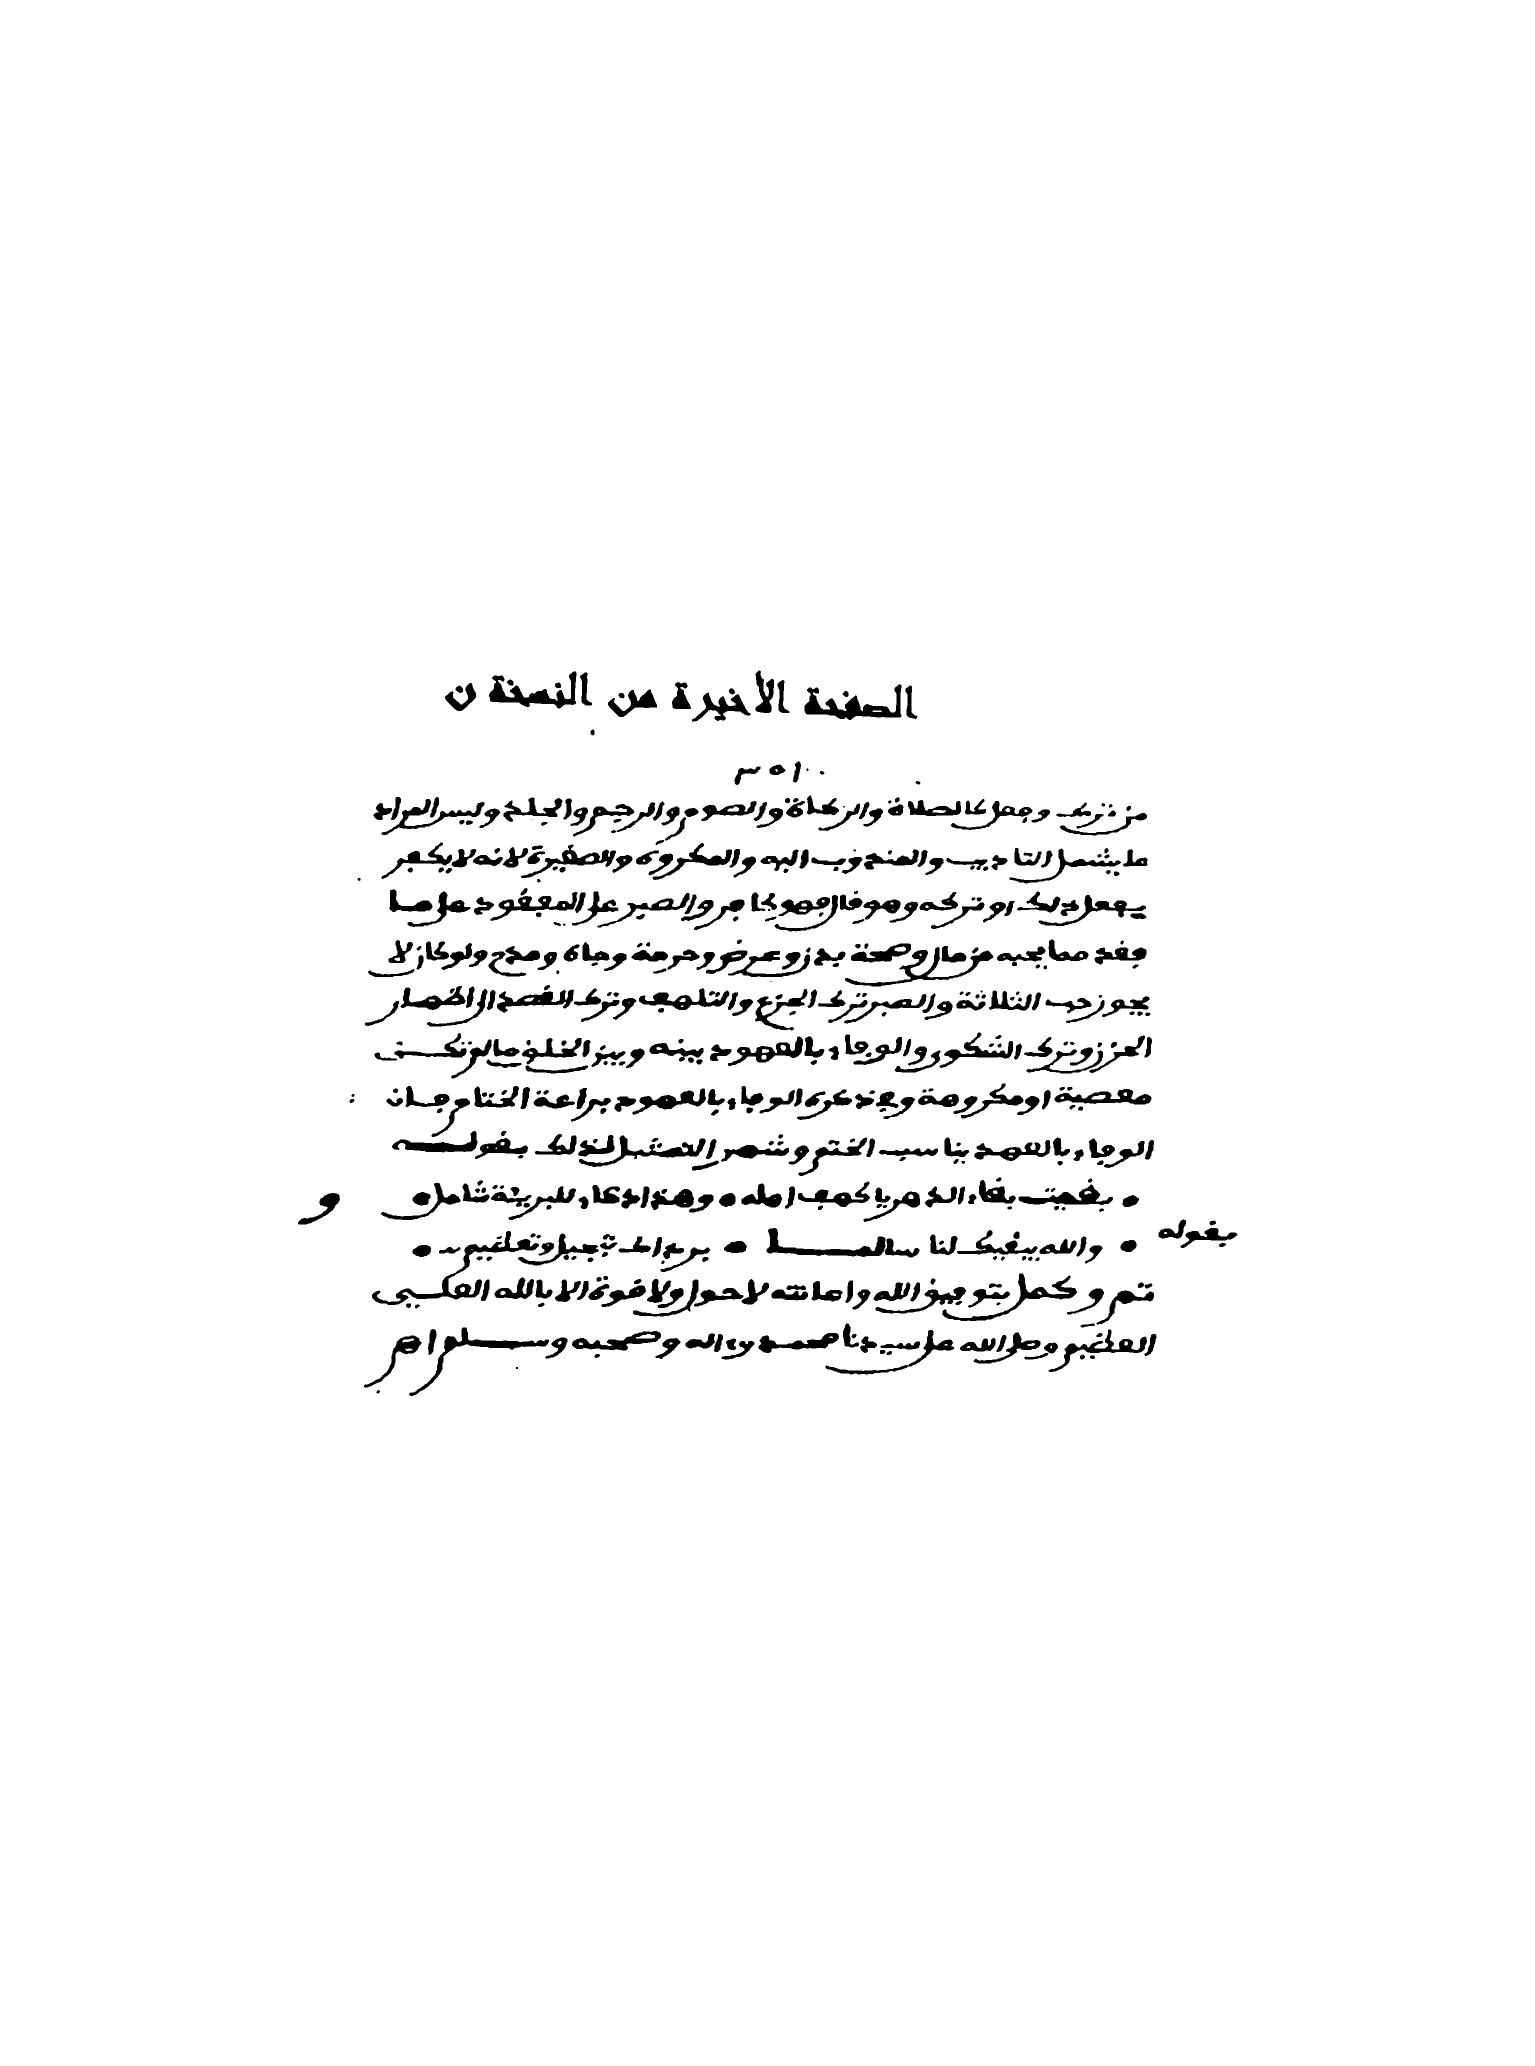 الصفحة الأخيرة من النسخة ن
٣٥١
من ترك وفعل كالصلاة والزكاة والصوم والرجم والجلد وليس المراد
ما يشمل التاديب والمندوب اليه والمكروه والصغيرة لانه لا يكفر
بفعل ذلك او تركه وهو فال فهو كافر والصبر على المفقود على ما
فقد مما يحبه من مال وصحة بدن وعرض وحرمة وجاه ومدح ولو كان لا
يجوز حب الثلاثة والصبر ترك الجزع والتلهف وترك القصد الى اظهار
الحزن وترك الشكوى والوفاء بالعهود بينه وبين الخلق ما لم تكن
معصية او مكروهة وفي ذكره الوفاء بالعهود براعة الختام فان
الوفاء بالعهد يناسب الختم وشهر التمثيل لذلك بقوله
بقيت بقاء الدهر يا كهف اهله وهذا دعاء للبرية شامل
و
بقوله
والله يبقيك لنا سالما برداك تبجيل وتعظيم
تم وكمل بتوفيق الله واعانته لا حول ولا قوة الا بالله العلي
العظيم وصلى الله على سيدنا محمد واله وصحبه وسلم اهـ